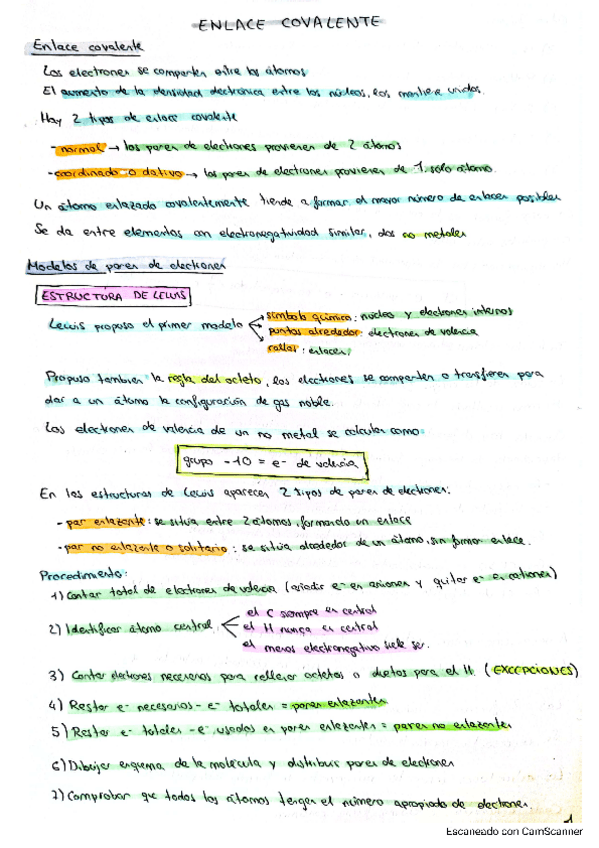 ENLACE COVALENTE
Enlace covalente
Los electrones se comparten entre los átomos
El aumento de la densidad electrónica entre los núcleos, los mantiene unidos.
Hay 2 tipos de enlace covalente
- normal → los pares de electrones provienen de 2 átomos
- coordinado o dativo → los pares de electrones provienen de 1 solo átomo.
Un átomo enlazado covalentemente tiende a formar el mayor número de enlaces posibles
Se da entre elementos con electronegatividad similar, dos no metales
Modelos de pares de electrones
ESTRUCTURA DE LEWIS
símbolo químico: núcleo y electrones internos
Lewis propuso el primer modelo
puntos alrededor: electrones de valencia
rallas: enlaces
Propuso tambien la regla del octeto, los electrones se comparten o transfieren para
dar a un átomo la configuración de gas noble.
Los electrones de valencia de un no metal se calculan como:
grupo - 10 = e- de valencia
En las estructuras de Lewis aparecen 2 tipos de pares de electrones:
- par enlazante: se situa entre 2 átomos, formando un enlace
- par no enlazante o solitario: se situa alrededor de un átomo, sin formar enlace.
Procedimiento:
1) Contar total de electrones de valencia (añadir e- en aniones y quitar e- en cationes)
el C siempre es central
2) Identificar átomo central
el H nunca es central
el menos electronegativo suele ser.
3) Contar electrones necesarios para rellenar octetos o duetos para el H. (EXCEPCIONES)
4) Restar e- necesarios - e- totales = pares enlazantes
5) Restar e- totales - e- usados en pares enlazantes = pares no enlazantes
6) Dibujar esquema de la molécula y distribuir pares de electrones
7) Comprobar que todos los átomos tengan el número apropiado de electrones.
1
Escaneado con CamScanner